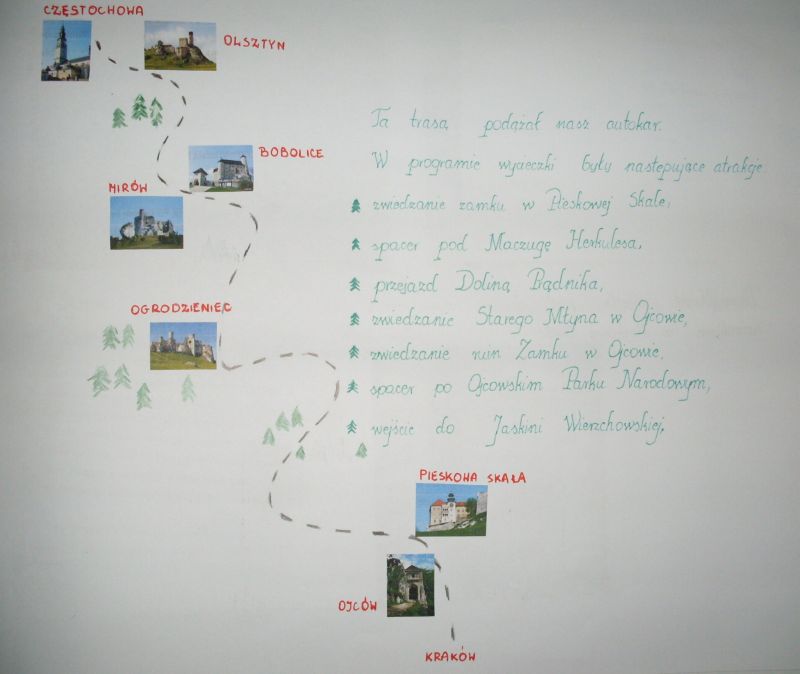 CZĘSTOCHOWA
OLSZTYN
BOBOLICE
MIRÓW
OGRODZIENIEC
Tą trasą podążał nasz autokar.
W programie wycieczki były następujące atrakcje:
zwiedzanie zamku w Pieskowej Skale,
spacer pod Maczugę Herkulesa,
przejazd Doliną Prądnika,
zwiedzanie Starego Młyna w Ojcowie,
zwiedzanie ruin Zamku w Ojcowie,
spacer po Ojcowskim Parku Narodowym,
wejście do Jaskini Wierzchowskiej.
PIESKOWA SKAŁA
OJCÓW
KRAKÓW